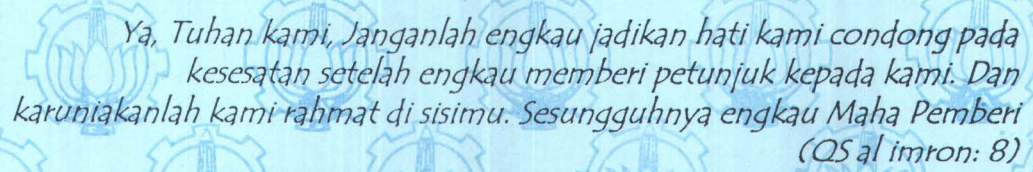 Ya, Tuhan kami, Janganlah engkau jadikan hati kami condong pada
kesesatan setelah engkau memberi petunjuk kepada kami. Dan
karuniakanlah kami rahmat di sisimu. Sesungguhnya engkau Maha Pemberi
(QS al imron: 8)